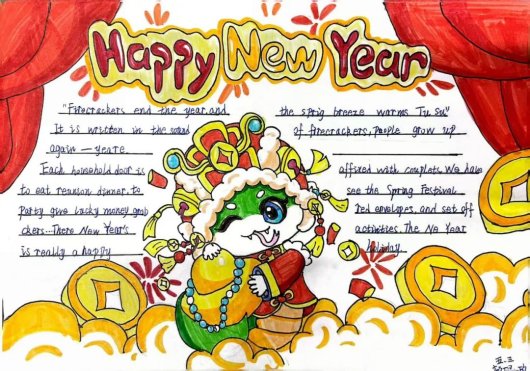 Happy New Year
"Firecrackers end the year, and the sprig breeze warms Tu Su"
It is written in the sound of firecrackers, people grow up
again — yeare
Each household door is affixed with couplets. We have
to eat reunion dinner, to see the Spring Festival
Party give Lucky money grab red envelopes, and set off
ckers... There New Year's activities. The Ne Year
is really a happy holiday.
五.三